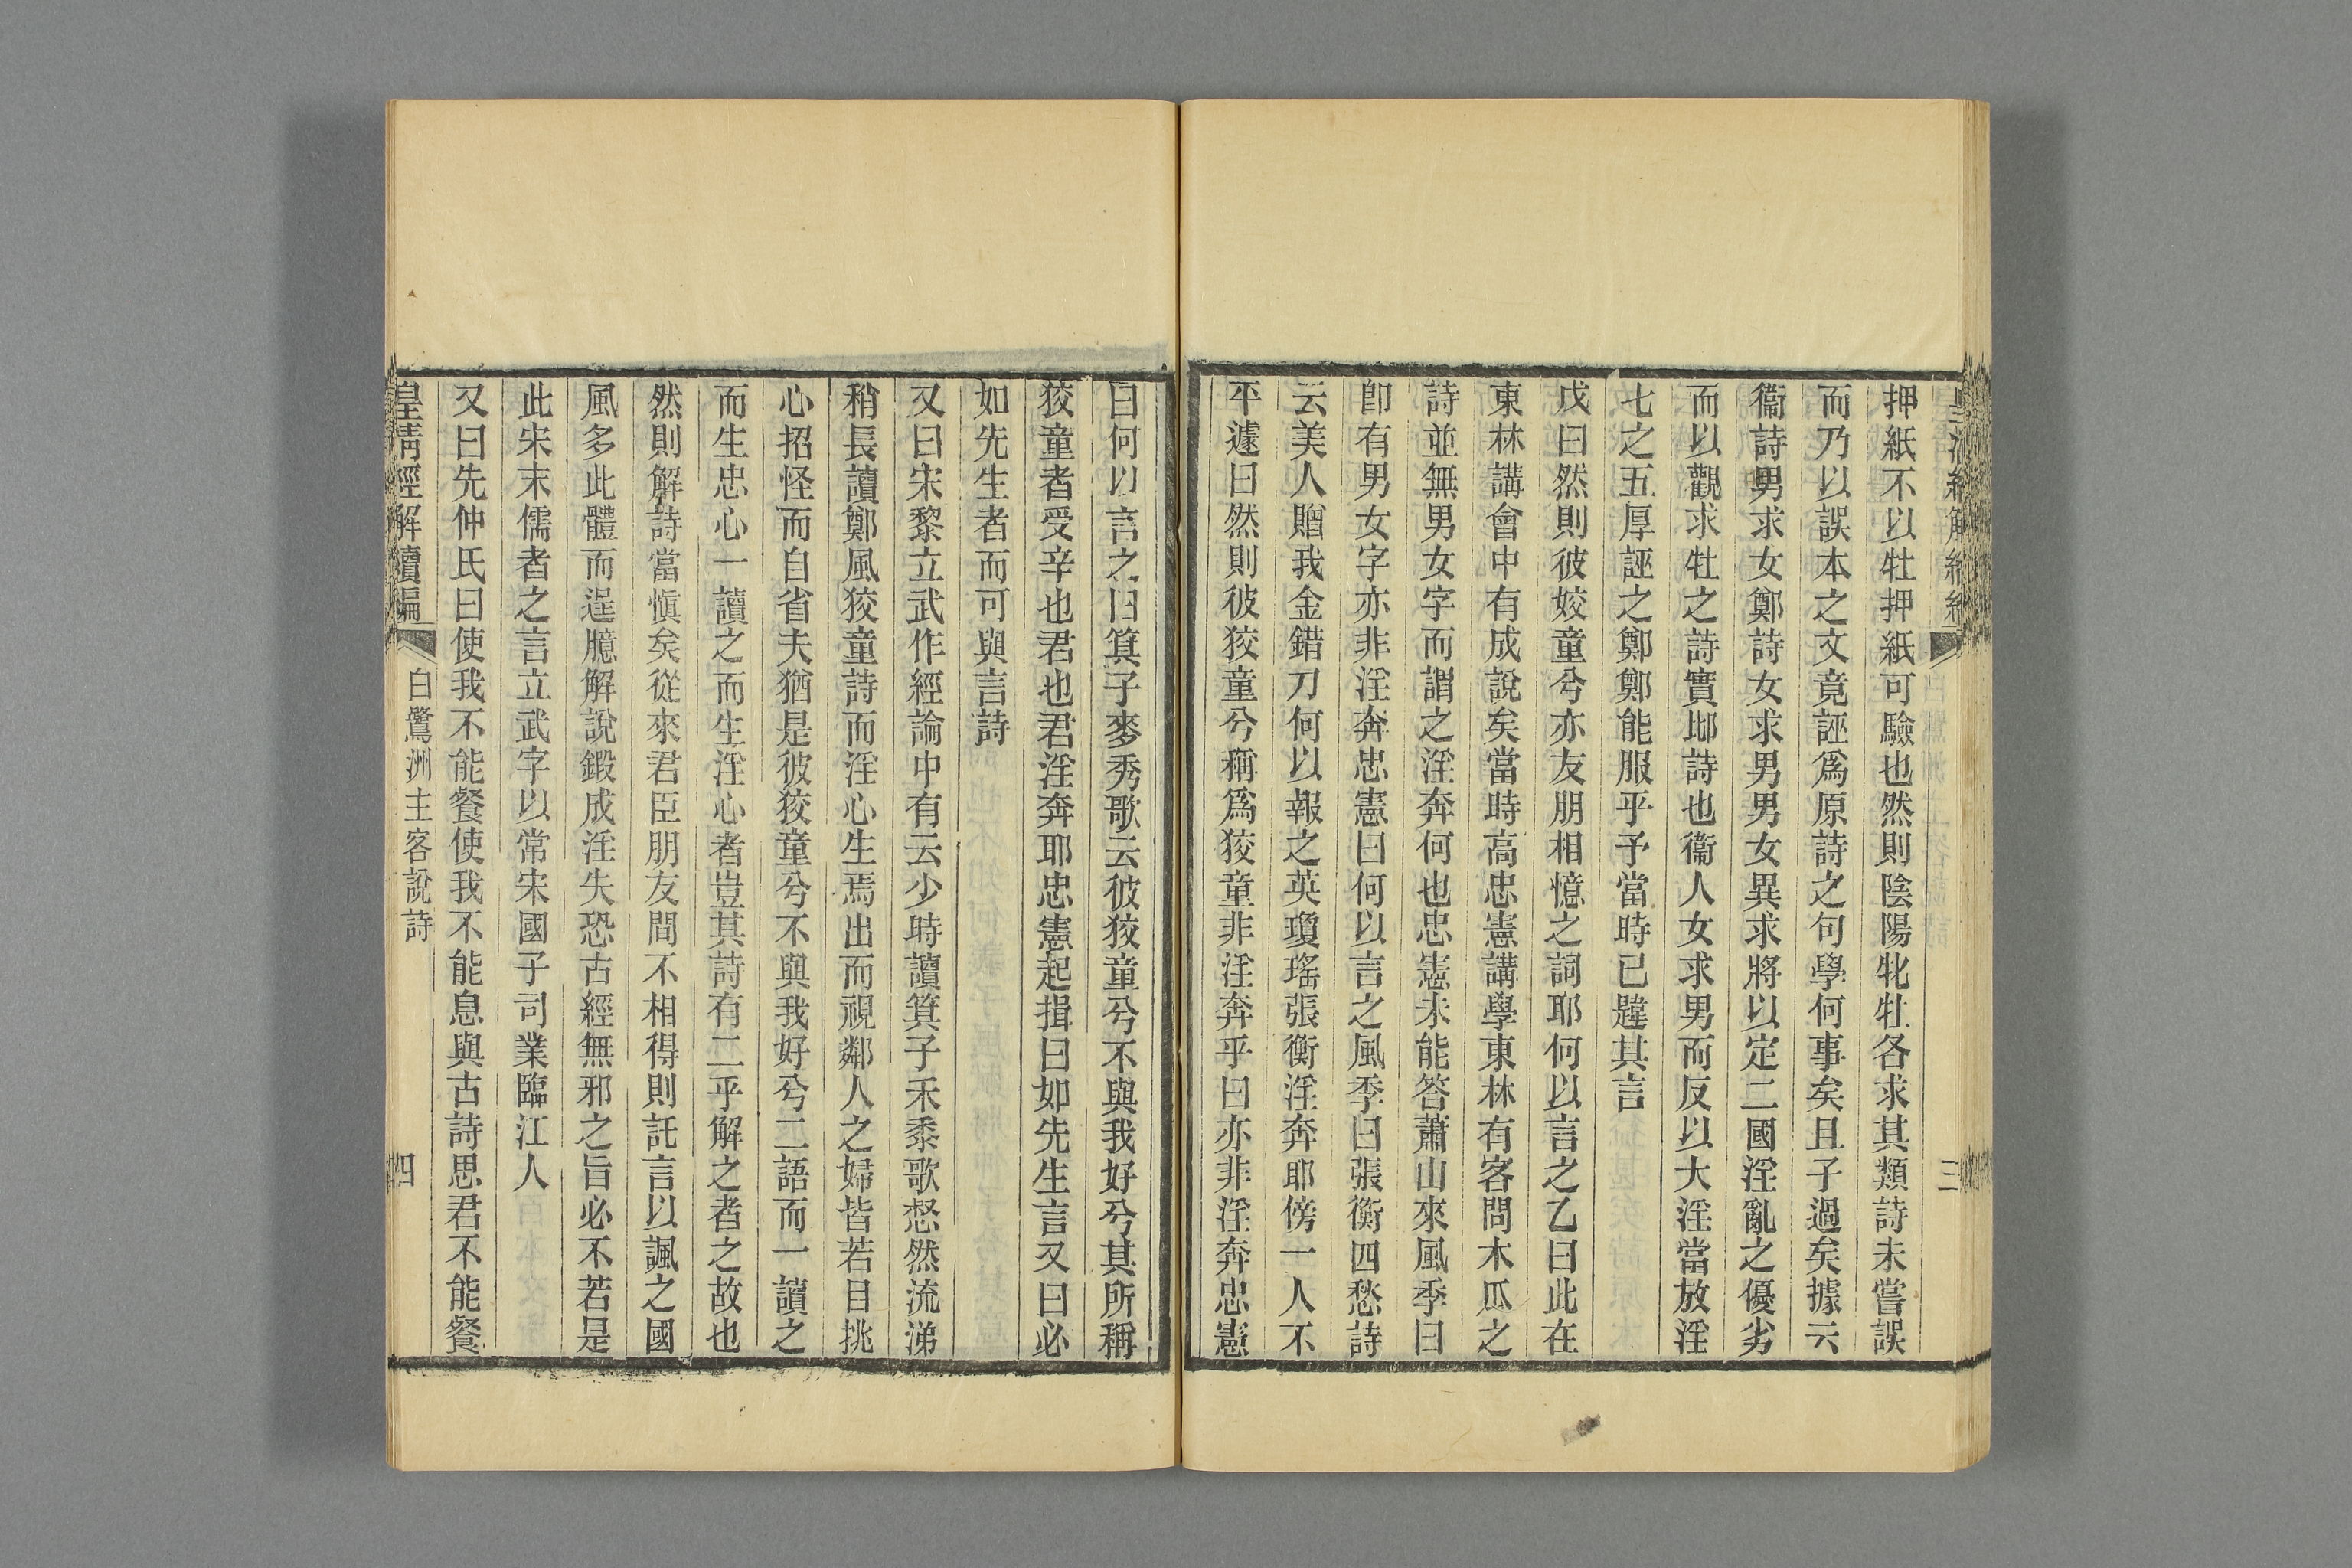 押紙不以牡押紙可驗也然則陰陽牝牡各求其類詩未嘗誤
而乃以誤本之文竟誣爲原詩之句學何事矣且子過矣據云
衞詩男求女鄭詩女求男男女異求將以定二國淫亂之優劣
而以觀求牡之詩實邶詩也衞人女求男而反以大淫當放淫
七之五厚誣之鄭鄭能服乎予當時已韙其言
戊曰然則彼姣童兮亦友朋相憶之詞耶何以言之乙曰此在
東林講會中有成說矣當時高忠憲講學東林有客問木瓜之
詩並無男女字而謂之淫奔何也忠憲未能答蕭山來風季曰
卽有男女字亦非淫奔忠憲曰何以言之風季曰張衡四愁詩
云美人贈我金錯刀何以報之英瓊瑤張衡淫奔耶傍一人不
平遽曰然則彼狡童兮稱爲狡童非淫奔乎曰亦非淫奔忠憲
曰何以言之曰箕子麥秀歌云彼狡童兮不與我好兮其所稱
狡童者受辛也君也君淫奔耶忠憲起揖曰如先生言又曰必
如先生者而可與言詩
又曰宋黎立武作經論中有云少時讀箕子禾黍歌惄然流涕
稍長讀鄭風狡童詩而淫心生焉出而視鄰人之婦皆若目挑
心招怪而自省夫猶是彼狡童兮不與我好兮二語而一讀之
而生忠心一讀之而生淫心者豈其詩有二乎解之者之故也
然則解詩當愼矣從來君臣朋友間不相得則託言以諷之國
風多此體而逞臆解說鍛成淫失恐古經無邪之旨必不若是
此宋末儒者之言立武字以常宋國子司業臨江人
又曰先仲氏曰使我不能餐使我不能息與古詩思君不能餐
皇清經解續編 白鷺洲主客說詩 四